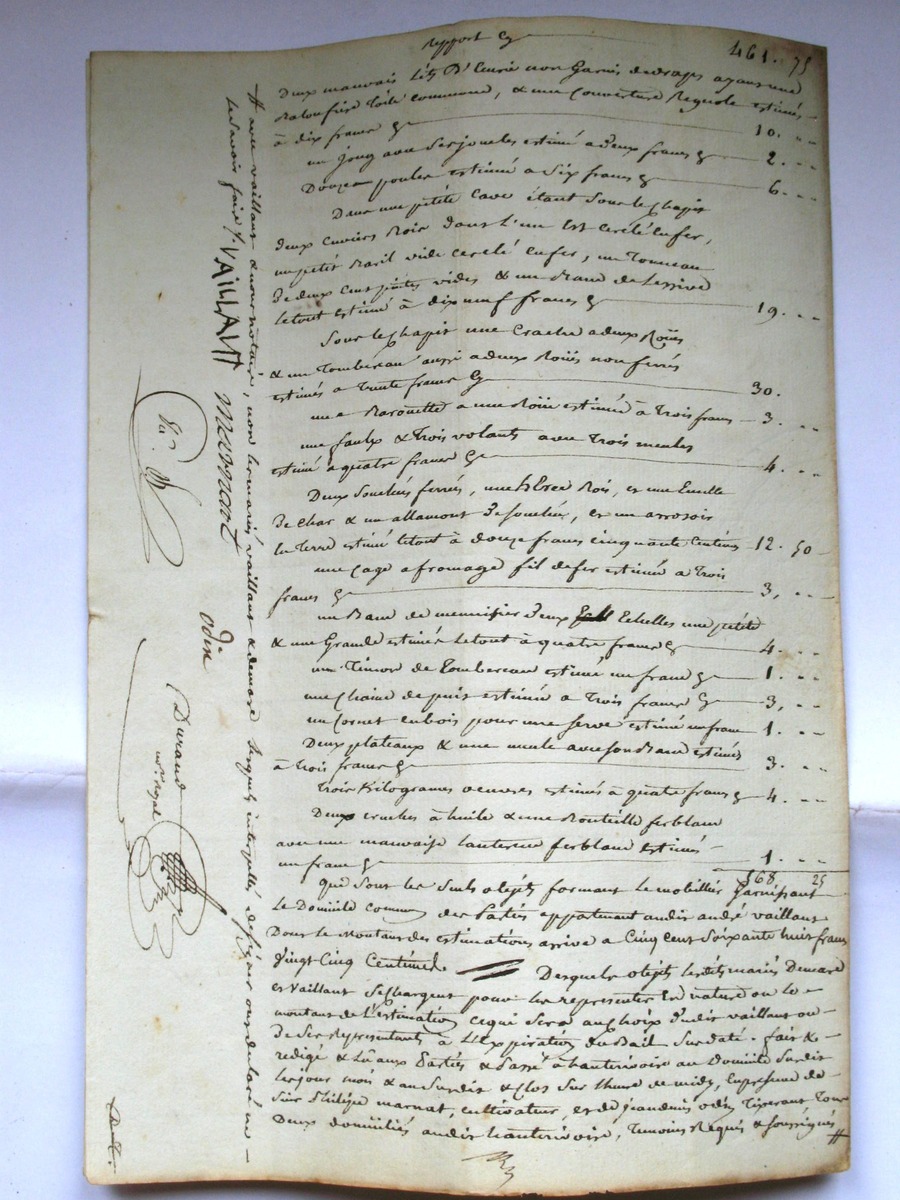 Report Cy 461. 75
Deux mauvais Lits D'Ecurie non Garnis de draps ayant une
toile commune, & une Couverture estimés
à dix francs Cy 10. ..
un joug avec ses joucles estimé a deux francs Cy 2. ..
Douze poules estimé a Six francs Cy 6. ..
Dans une petite Cave étant Sous le chapit
deux Cuviers Bois dont l'un Est cerclé en fer,
un petit Baril vide cerclé en fer, un Tonneau
de deux Cent pintes vides & un Banc de Lessive
le tout estimé à dix neuf francs Cy 19. ..
Sous le chapit une à deux Roües
& un Tombereau aussi a deux Roües non ferrés
estimés a Trente francs Cy 30.
une Barouette a une Roüe estimée à Trois francs 3. ..
une faulx & Trois volants avec Trois meules
estimé a quatre francs Cy 4. ..
Deux ferrés, une Bois, et une Echelle
de char & un de, et un arrosoir
en Terre estimé le tout à douze francs cinquante Centimes 12. 50
une Cage a fromage fil de fer estimée a Trois
francs Cy 3, ..
un Banc de menuisier Deux Echelles une petite
& une Grande estimés le tout à quatre francs Cy 4. ..
un Timon de Tombereau estimé un franc Cy 1. ..
une Chaine de puit estimée a Trois francs Cy 3, ..
un Cornet en bois pour une serve estimé un franc 1. ..
Deux plateaux & une meule avec son Banc estimés
à Trois francs Cy 3. ..
Trois Kilogrames oeuvres estimés à quatre francs Cy 4. ..
Deux cruches à huile & une Bouteille ferblanc
avec une mauvaise Lanterne ferblanc estimés
un franc Cy 1. ..
568 25
Qui Sont les Seuls objets formant le mobillier Garnissant
le Domicile commun des Parties appartenant audit andré vaillant
Dont le Montant des estimations arrive a Cinq Cent Soixante huit francs
Vingt Cinq Centimes. Desquels objets lesdits mariés Demare
et Vaillant Se chargent pour les representer En nature ou le
montant de l'Estimation ce qui Sera au choix dudit vaillant ou
de Ses Representants à L'Expiration du Bail Sus daté. fait &
redigé & Lû aux Parties & Passé à hauterivoire au Domicile Susdit
les jour mois & an Susdit & Clos Sur l'heure de midy, En presence de
Sieur Philipe marnat, cultivateur, et de jean denis odin Tixerant Tous
Deux domiciliés audit hauterivoire, Temoins Requis & Soussignés #
# avec vaillant & nous notaire, non les mariés vaillant & demare lesquels interpellés de signer ont declaré ne
le Savoir faire /. VAILLANT marnat odin
Durand
not. royal